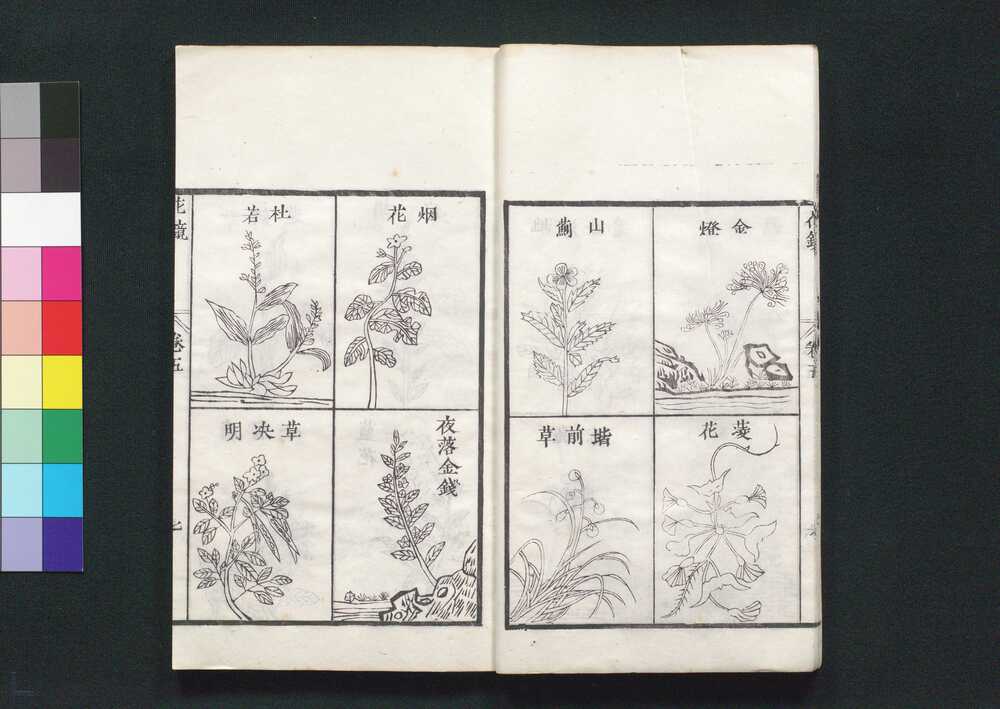 花鏡
卷五
金燈
山薊
菱花
堦前草
烟花
杜若
夜落金錢
草决明
花鏡
卷五
七